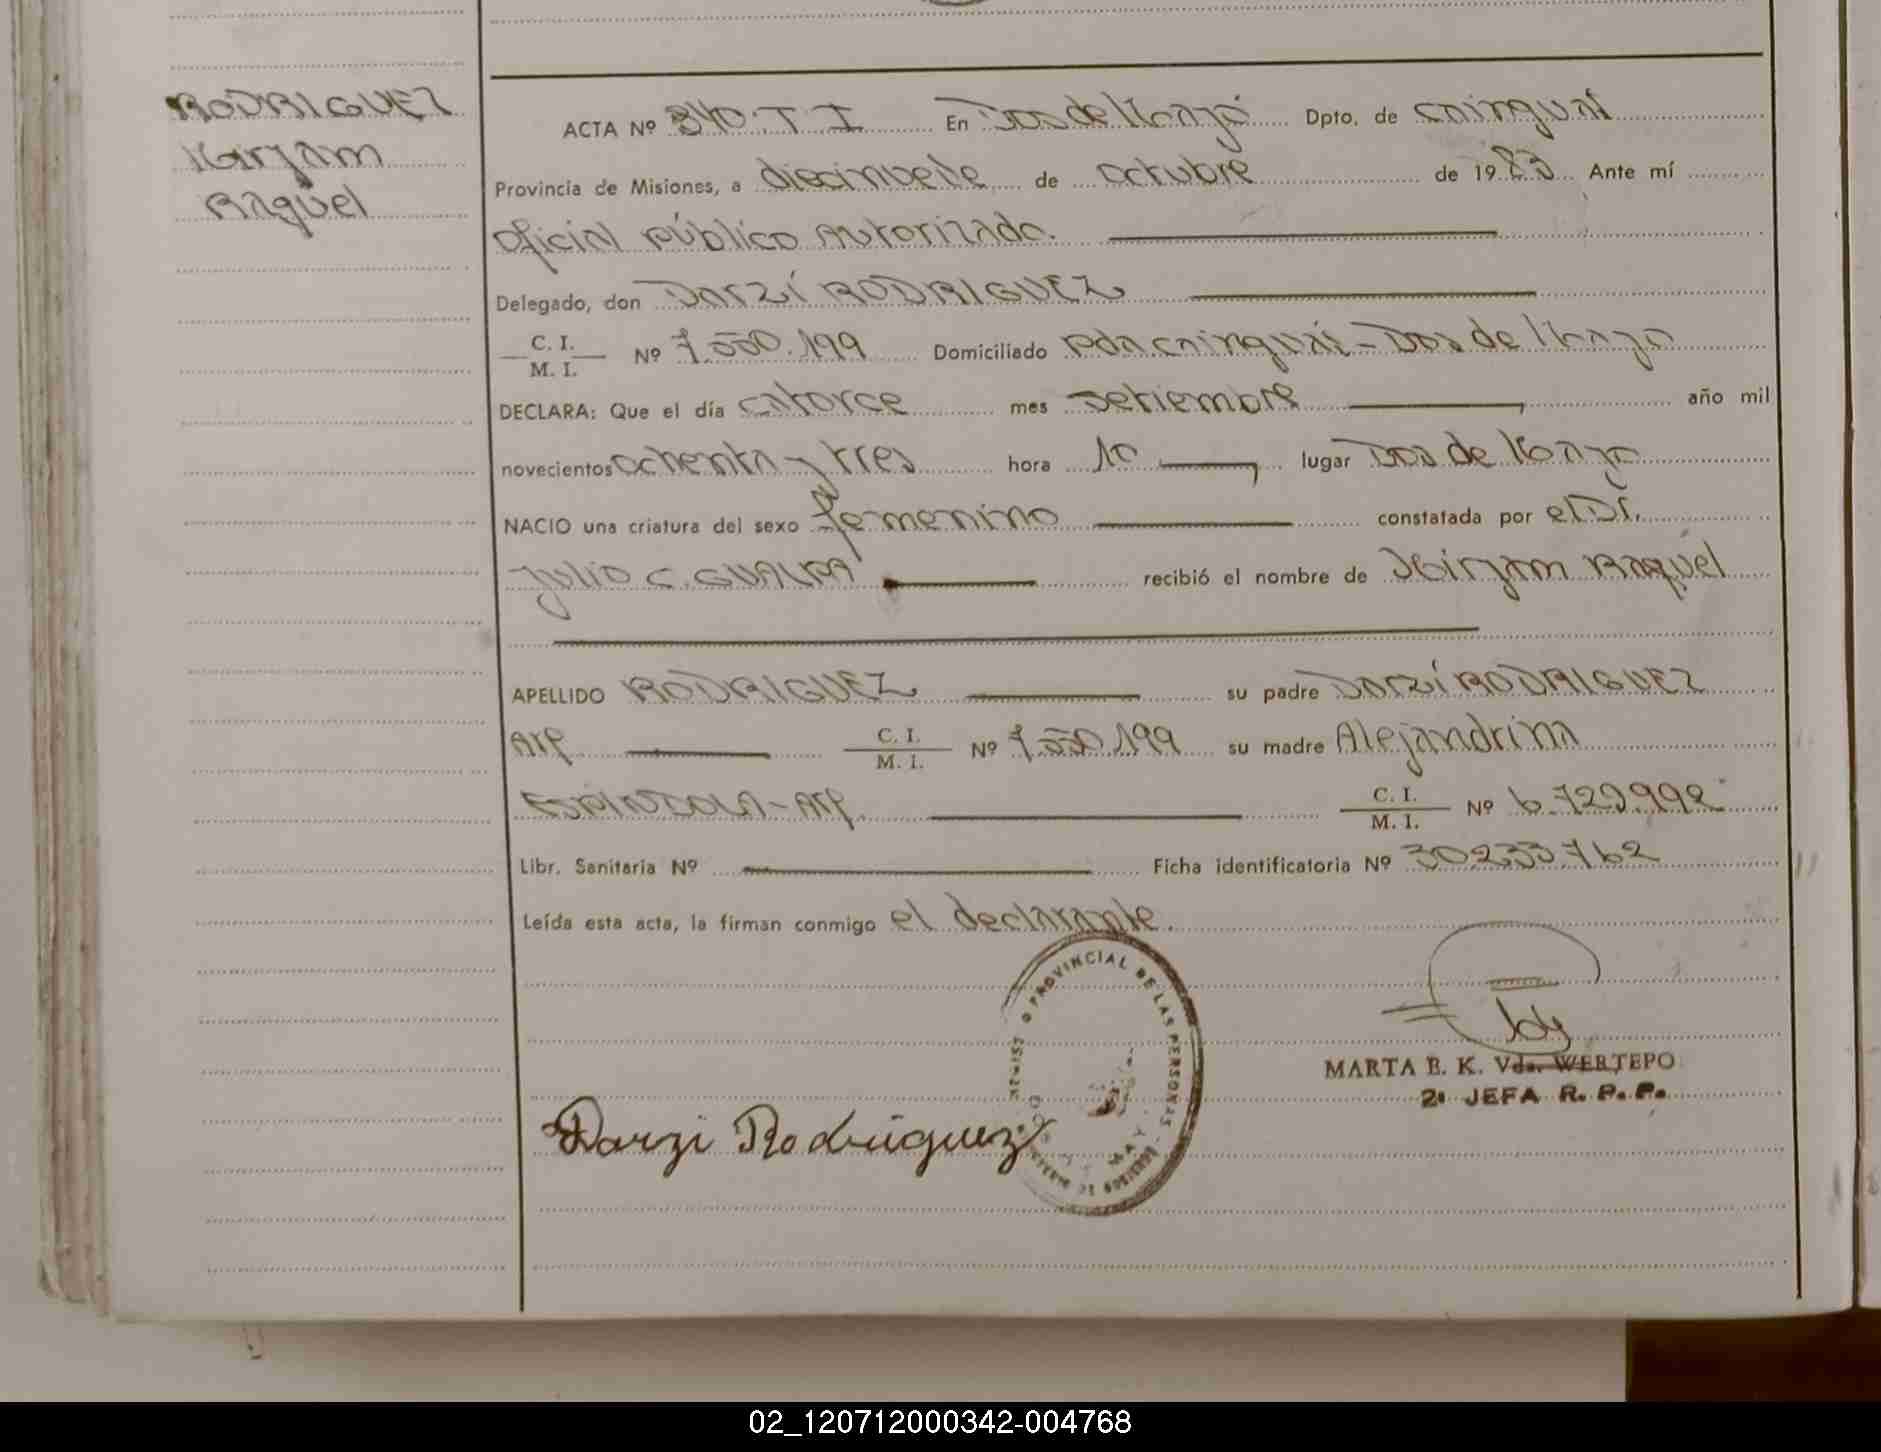 RODRIGUEZ
Miryam
Raquel
ACTA Nº 340. T I En Dos de Mayo Dpto. de Cainguás
Provincia de Misiones, a diecinueve de octubre de 1983 Ante mí
oficial público autorizado.
Delegado, don Darzí RODRIGUEZ
C. I.
M. I. Nº 7.550.199 Domiciliado Pda cainguás - Dos de Mayo
DECLARA: Que el día catorce mes setiembre año mil
novecientos ochenta y tres hora 10 lugar Dos de Mayo
NACIO una criatura del sexo femenino constatada por el Dr.
Julio C. GUALPA recibió el nombre de Miryam Raquel
APELLIDO RODRIGUEZ su padre Darzí RODRIGUEZ
Arg. C. I.
M. I. Nº 7.550.199 su madre Alejandrina
ESPINDOLA - Arg. C. I.
M. I. Nº 6.729.992
Libr. Sanitaria Nº Ficha identificatoria Nº 30233762
Leída esta acta, la firman conmigo el declarante.
PROVINCIAL DE LAS PERSONAS
MARTA E. K. Vda. WERTEPO
2ª JEFA R. P. P.
Darzi Rodriguez
02_120712000342-004768